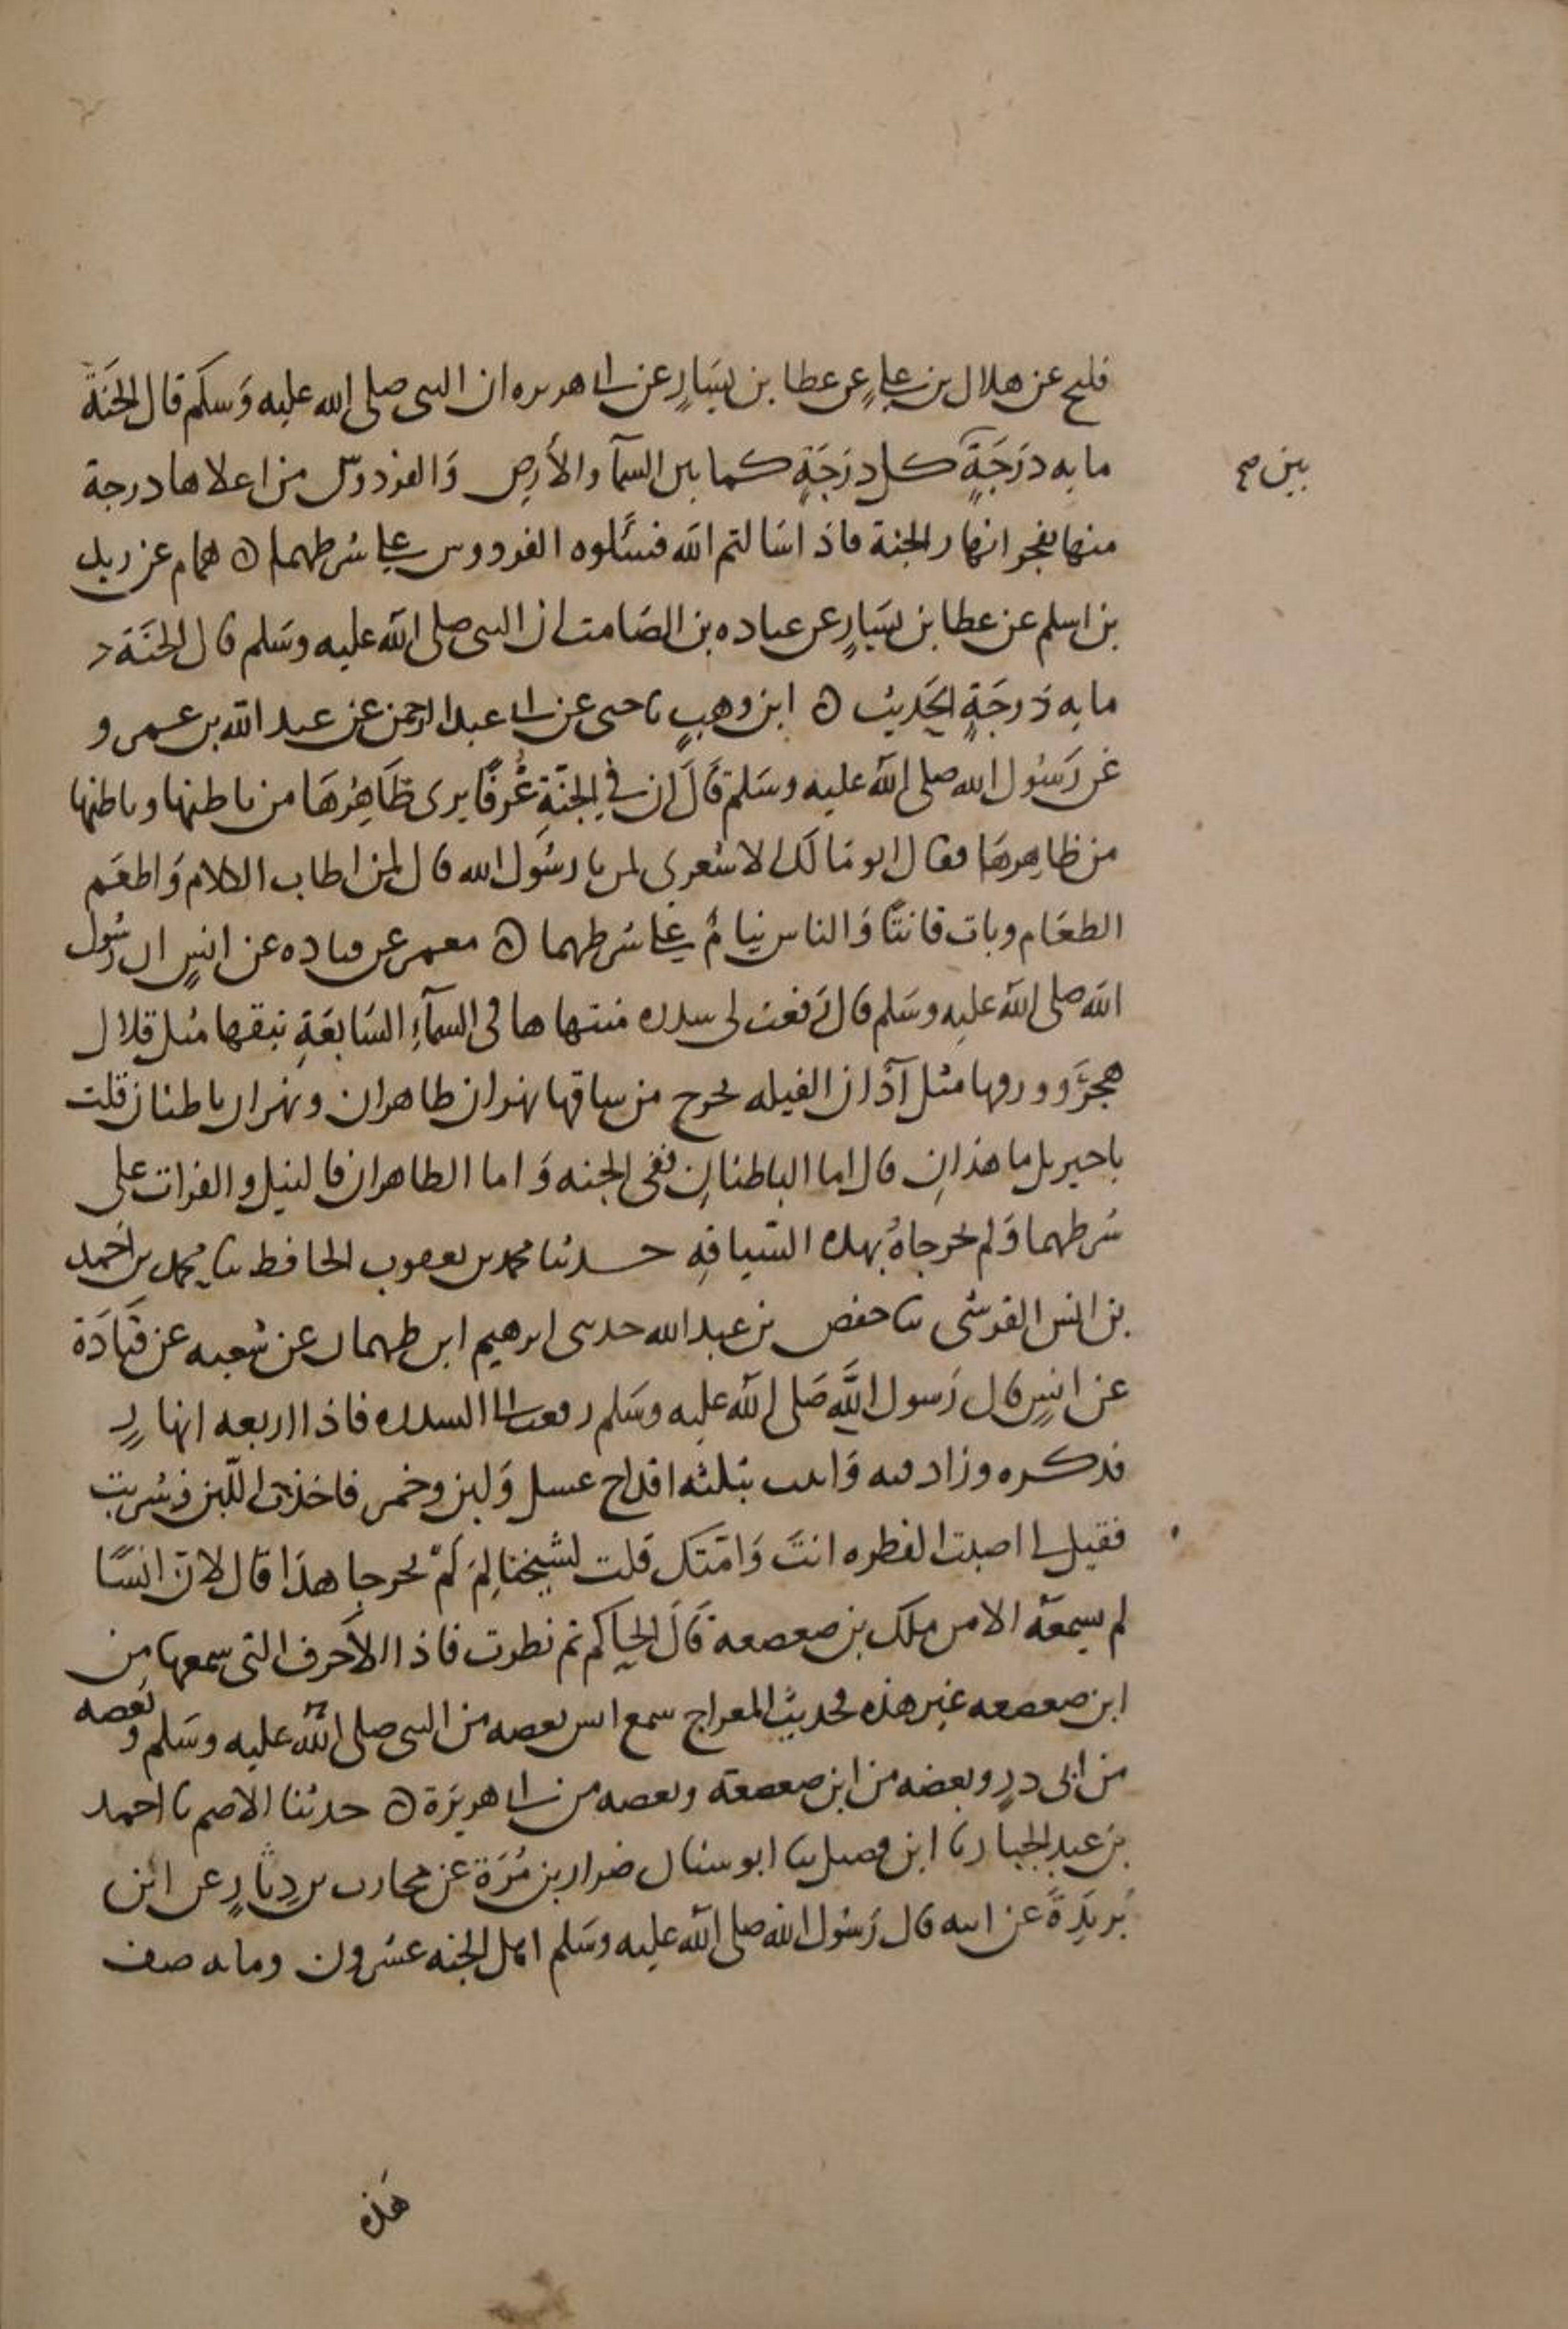 فليح عن هلال بن علي عن عطا بن يسار عن ابي هريره ان النبي صلى الله عليه وسلم قال الجنة
مايه درجة كل درجة كما بين السمآ والأرض والفردوس من اعلاها درجة
بين صح
منها تفجر انهار الجنة فاذا سالتم الله فسئلوه الفردوس علي شرطهما ه همام عن زيد
بن اسلم عن عطا بن يسار عن عباده بن الصامت ان النبي صلى الله عليه وسلم قال الجنة
مايه درجة الحديث ه ابن وهب نا حيي عن ابي عبد الرحمن عن عبد الله بن عمرو
عن رسول الله صلى الله عليه وسلم قال ان في الجنة غرفا يرى ظاهرها من باطنها وباطنها
من ظاهرها فقال ابو مالك الاشعري لمن يا رسول الله قال لمن اطاب الكلام واطعم
الطعام وبات قانتا والناس نيام علي شرطهما ه معمر عن قتاده عن انس ان رسول
الله صلى الله عليه وسلم قال رفعت لي سدره منتهاها في السمآء السابعة نبقها مثل قلال
هجر وورقها مثل آذان الفيله يخرج من ساقها نهران ظاهران ونهران باطنان قلت
يا جبريل ما هذان قال اما الباطنان ففي الجنه واما الظاهران فالنيل والفرات على
شرطهما ولم يخرجاه بهذه السياقه حدثنا محمد بن يعقوب الحافظ ثنا محمد بن احمد
بن انس القرشي ثنا حفص بن عبد الله حدثني ابرهيم ابن طهمان عن شعبه عن قتادة
عن انس قال رسول الله صلى الله عليه وسلم رفعت لي السدره فاذا اربعه انهار
فذكره وزاد فيه واتيت بثلثه اقداح عسل ولبن وخمر فاخذت اللبن فشربت
فقيل لي اصبت الفطره انت وامتك قلت لشيخنا لم لم يخرجا هذا قال لان انسا
لم يسمعه الا من ملك بن صعصعة قال الحاكم ثم نظرت فاذا الاحرف التي سمعها من
ابن صعصعه غير هذه وحديث المعراج سمع انس بعضه من النبي صلى الله عليه وسلم وبعضه
من ابي ذر وبعضه من ابن صعصعة وبعضه من ابي هريرة ه حدثنا الاصم نا احمد
بن عبد الجبار نا ابن فضيل ثنا ابو سنان ضرار بن مرة عن محارب بن دثار عن ابن
بريدة عن ابيه قال رسول الله صلى الله عليه وسلم اهل الجنه عشرون ومايه صف
هذه